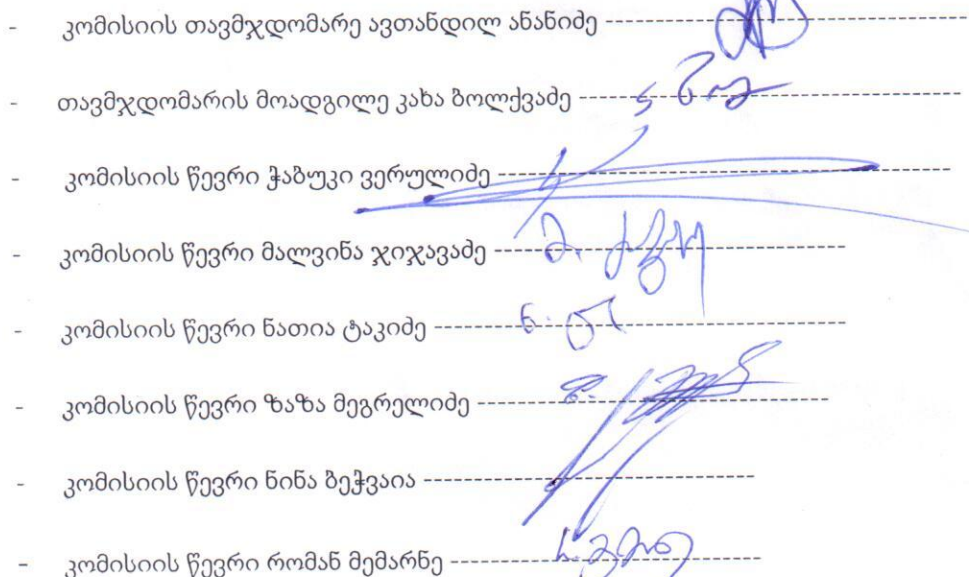 - კომისიის თავმჯდომარე ავთანდილ ანანიძე
- თავმჯდომარის მოადგილე კახა ბოლქვაძე
- კომისიის წევრი ჭაბუკი ვერულიძე
- კომისიის წევრი მალვინა ჯიჯავაძე
- კომისიის წევრი ნათია ტაკიძე
- კომისიის წევრი ზაზა მეგრელიძე
- კომისიის წევრი ნინა ბეჭვაია
- კომისიის წევრი რომან მემარნე